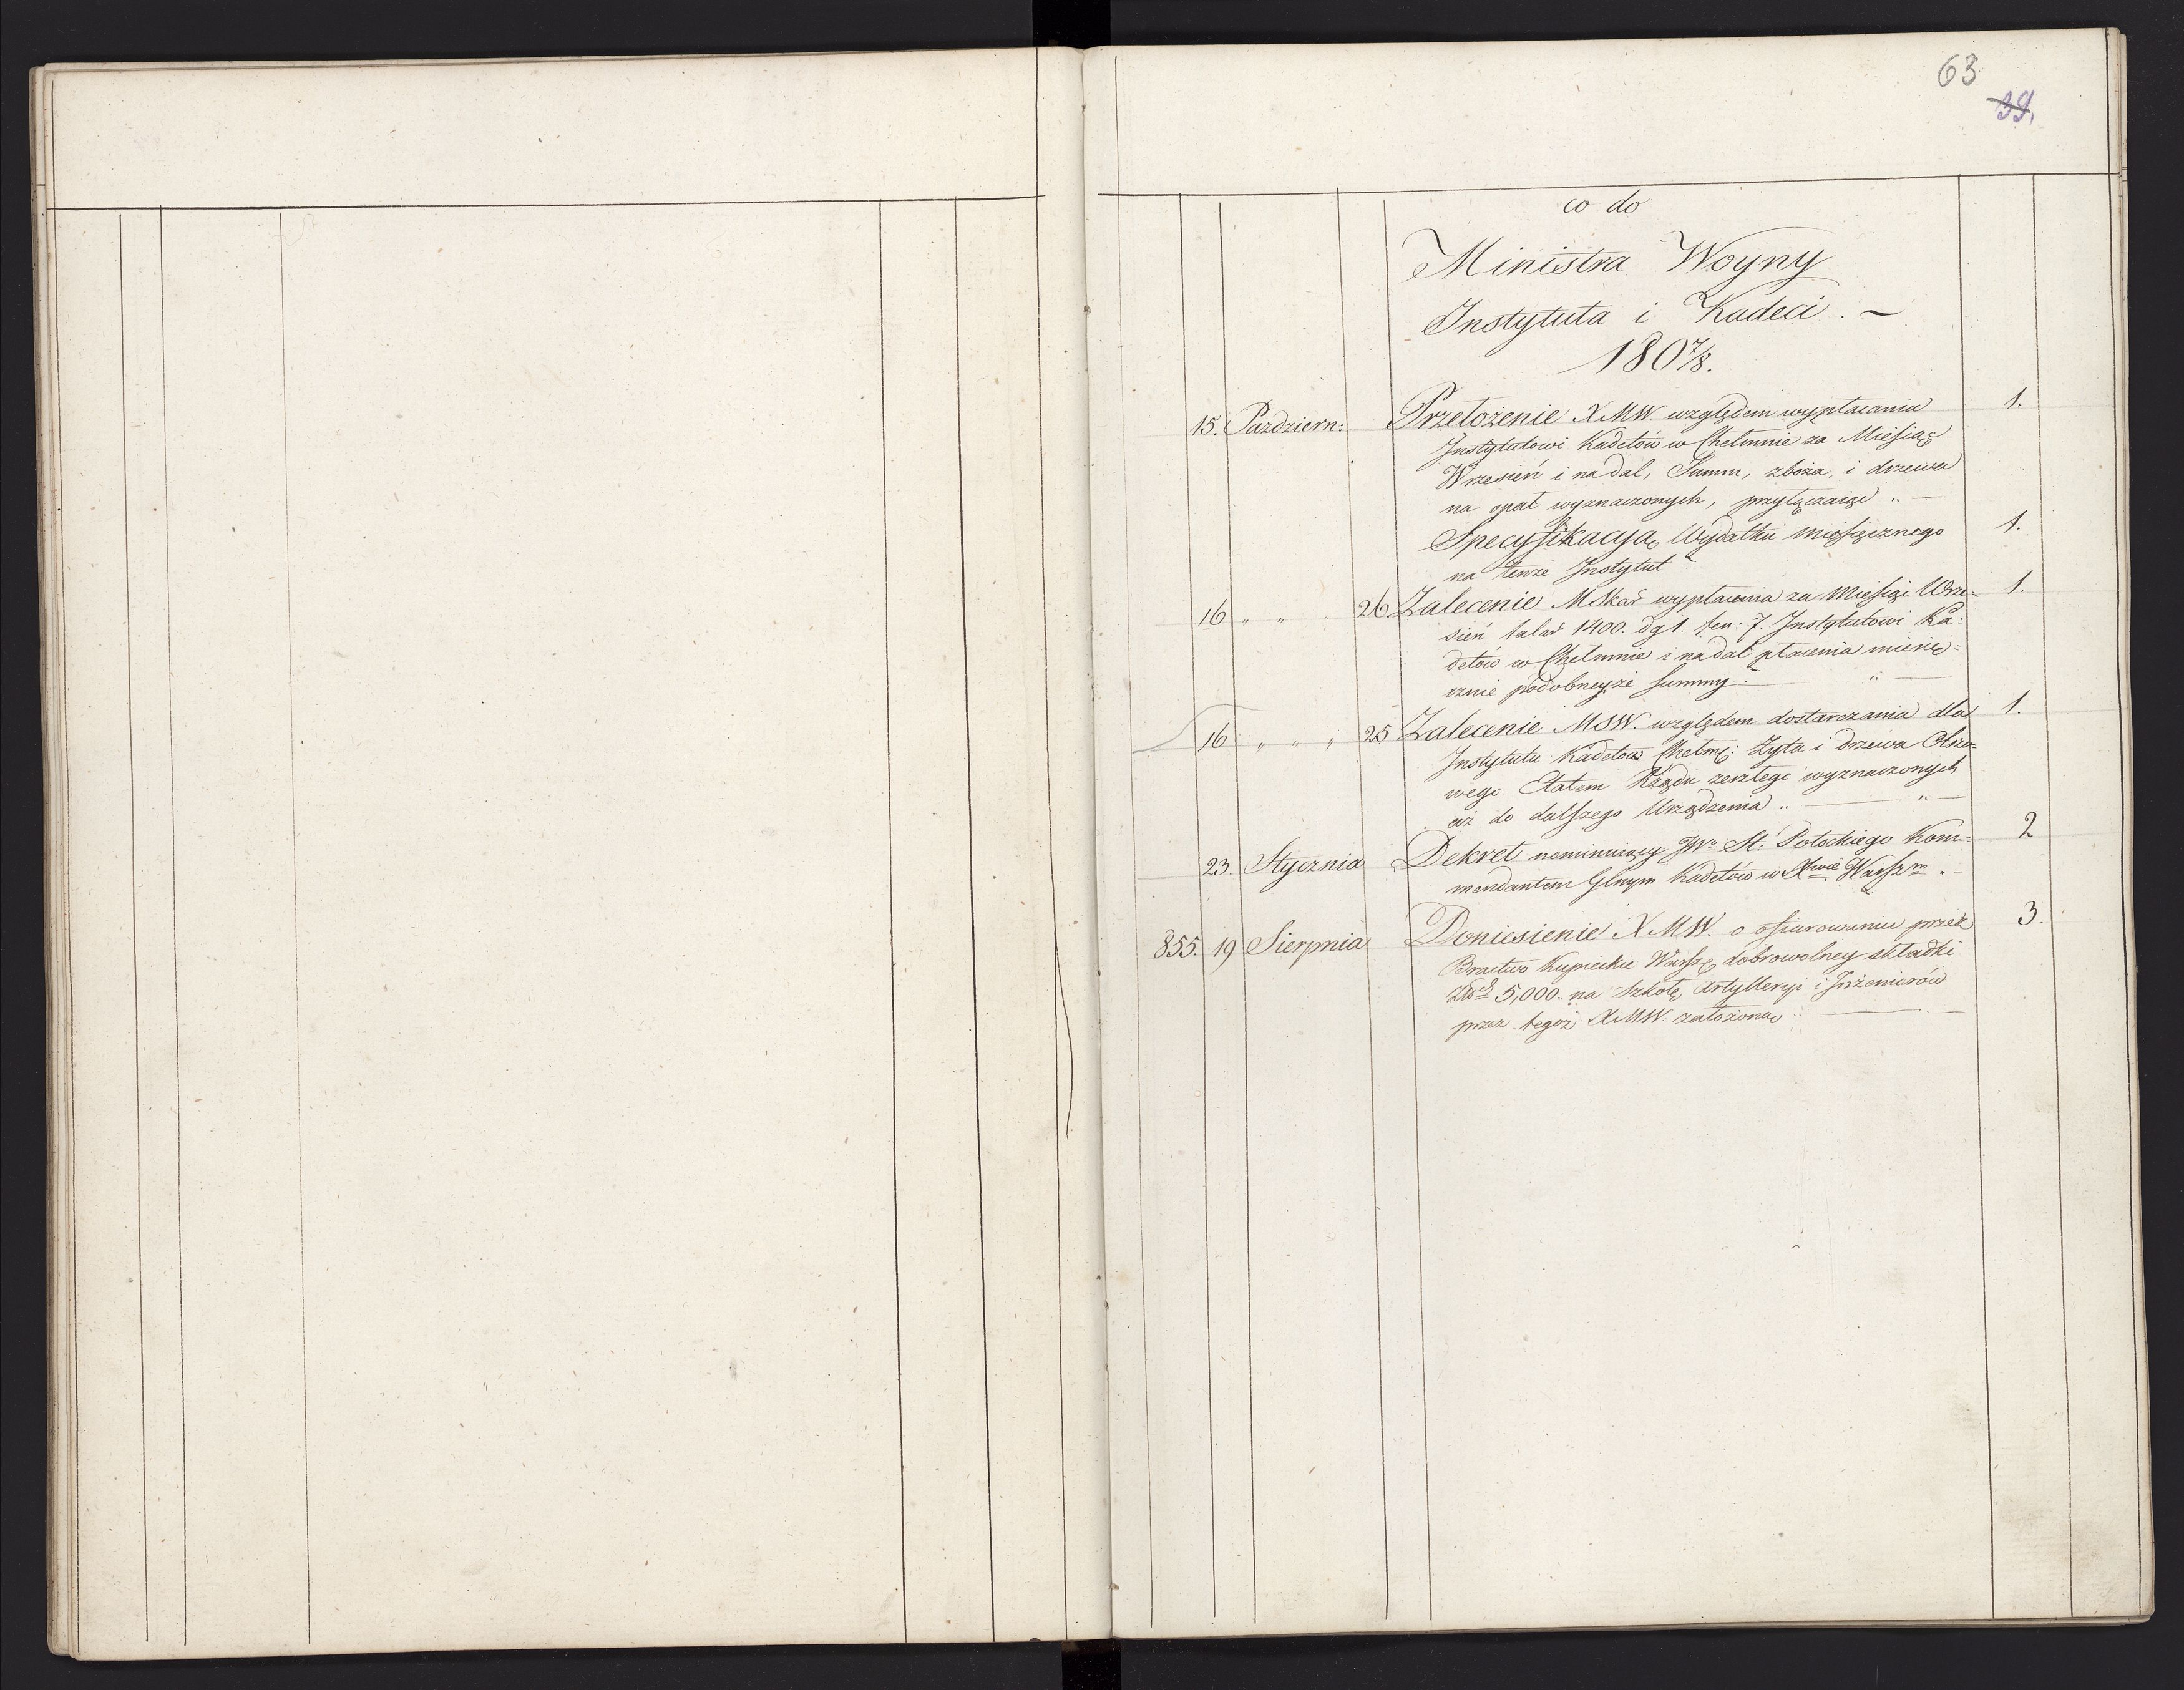 63
39.
co do
Ministra Woyny
Instytuta i Kadeci. —
180 7/8.
15. Październ: Przełożenie XMW. względem wypłacania 1.
Instytutowi Kadetów w Chełmnie za Miesiąc
Wrzesień i nadal, Summ, zboża i drzewa
na opał wyznaczonych, przyłączaiąc „ —
Specyfikacyą Wydatku miesięcznego 1.
na tenże Instytut
16 „ „ 26 Zalecenie MSkar wypłacenia za Miesiąc Wrze- 1.
sień talar 1400. dg 1. fen: 7. Instytutowi Ka:
detów w Chełmnie i nadal płacenia miesię=
cznie podobneyże Summy „ —
16 „ „ „ 25 Zalecenie MSW. względem dostarczania dla 1.
Instytutu Kadetów Chełmę: Żyta i drzewa Olszo=
wego Etatem Rządu zeszłego wyznaczonych
aż do dalszego Urządzenia „ — „ —
23. Stycznia Dekret nominuiący JW. St: Potockiego Kom= 2
mendantem Głnym Kadetów w Xwie Warszm. —
855. 19 Sierpnia Doniesienie XMW. o ofiarowaniu przez 3.
Bractwo Kupieckie Warszę dobrowolney składki
5,000. na Szkołę Artylleryi i Inżenierów
przez tegoż XMW. założoną „ —